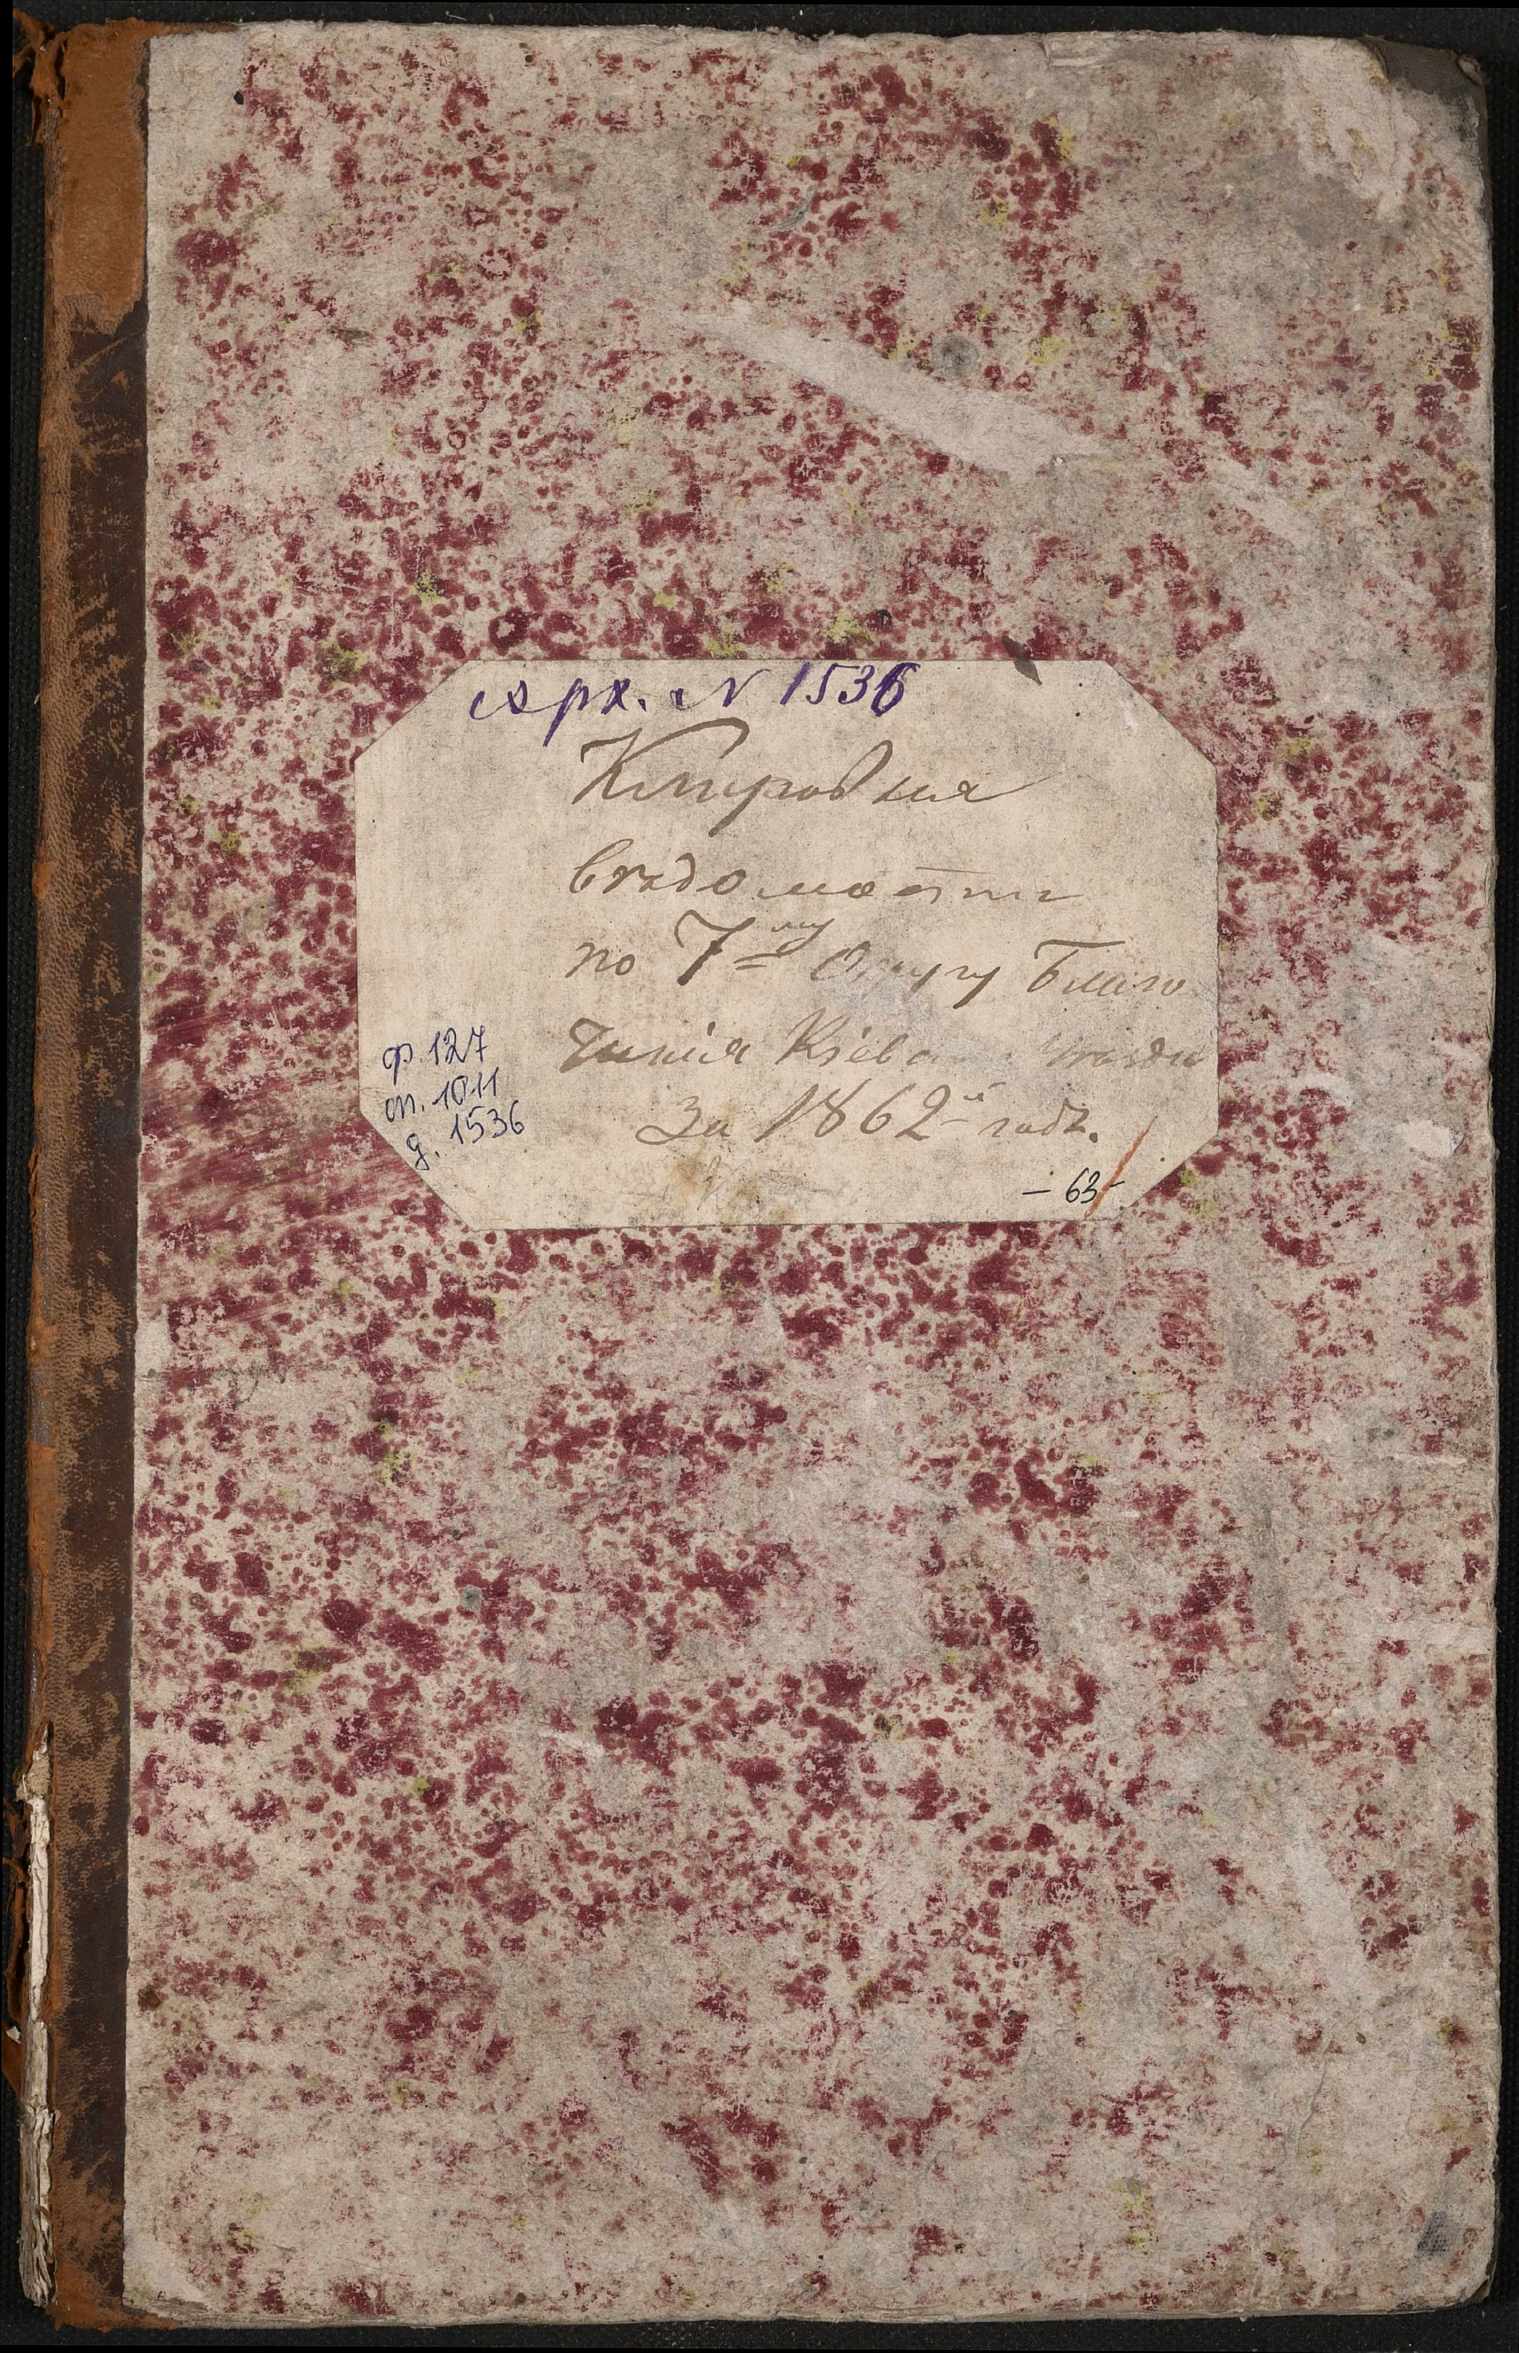 Арх. N 1536
Клировыя
вѣдомости
по 7му Округу Благо
чинія Кіева уѣзда
За 1862й годъ.
ф. 127
оп. 1011
д. 1536
- 63 -